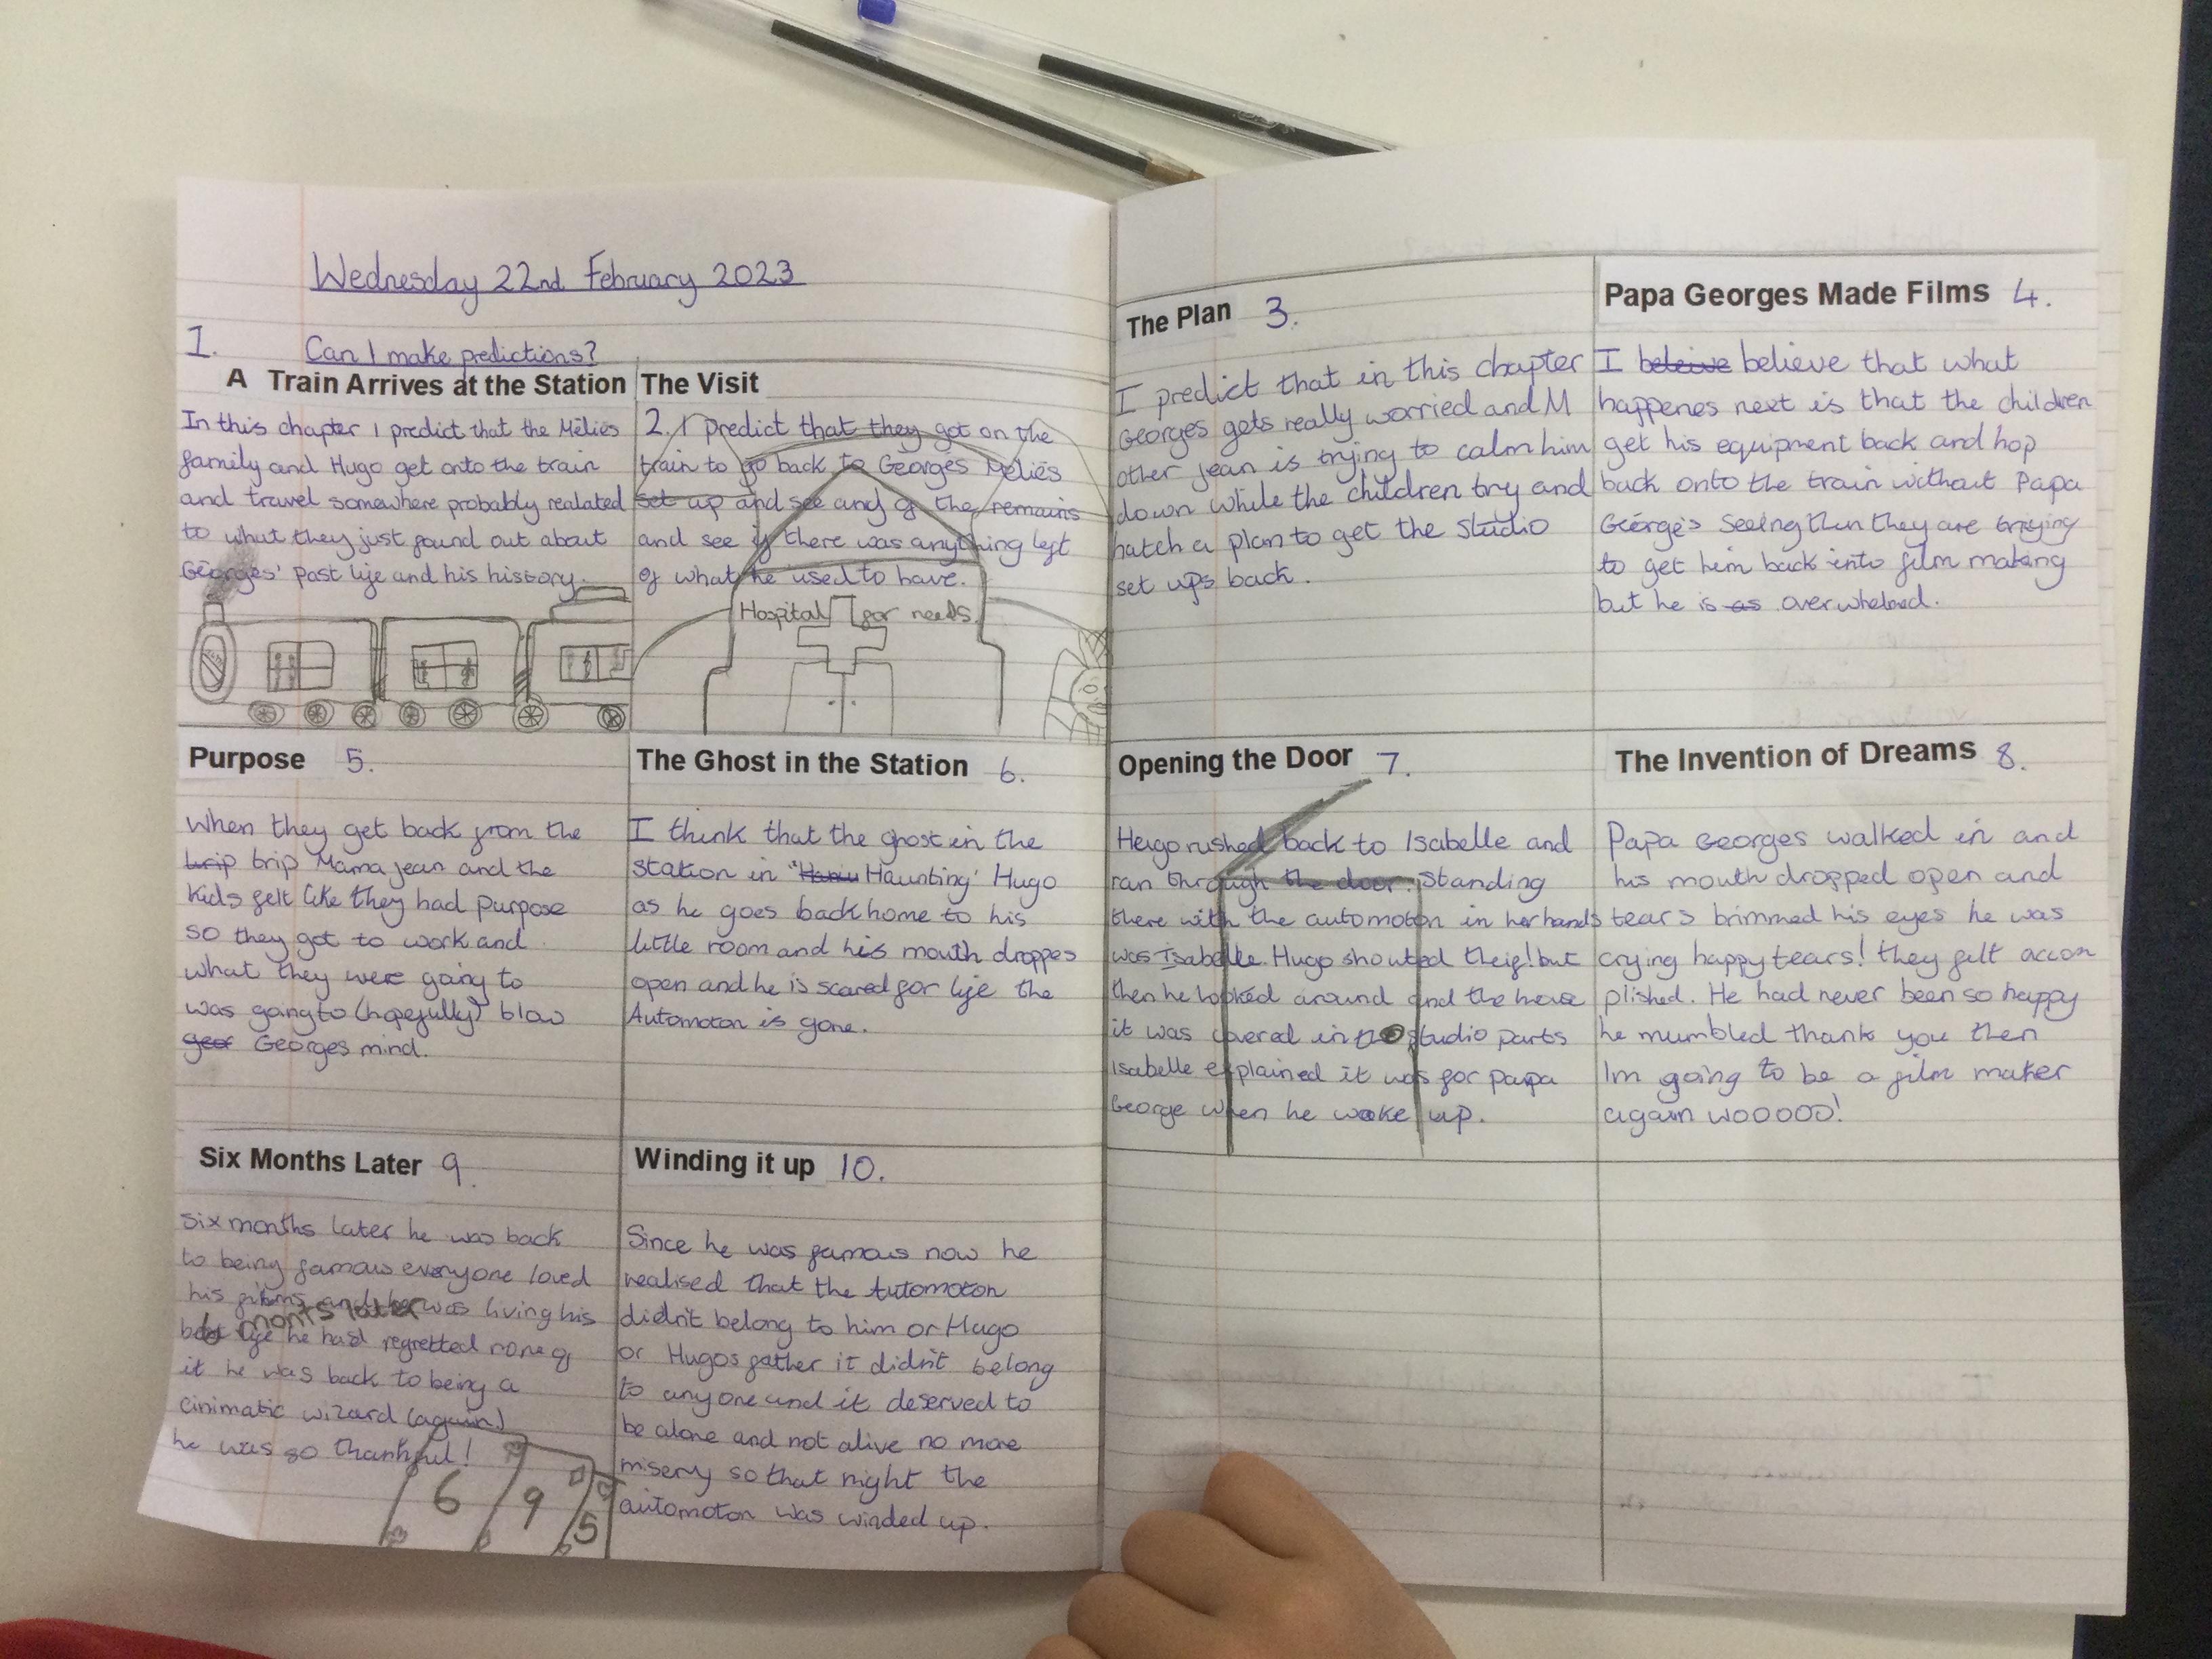 Wednesday 22nd February 2023
1.
Can I make predictions?
A Train Arrives at the Station
In this chapter I predict that the Méliés
family and Hugo get onto the train
and travel somewhere probably realated
to what they just found out about
Georges' past life and his history.
The Visit
2. I predict that they got on the
train to go back to Georges Méliés
set up and see any of the remains
and see if there was anything left
of what he used to have.
Hospital for needs
The Plan 3.
I predict that in this chapter
Georges gets really worried and M
other jean is trying to calm him
down while the children try and
hatch a plan to get the studio
set ups back.
Papa Georges Made Films 4.
I beleive believe that what
happenes next is that the children
get his equipment back and hop
back onto the train without Papa
George's seeing then they are trying
to get him back into film making
but he is as overwhelmed.
Purpose 5.
When they get back from the
trip trip Mama jean and the
kids felt like they had purpose
so they got to work and
what they were going to
was going to (hopefully) blow
geor Georges mind.
The Ghost in the Station 6.
I think that the ghost in the
station in 'Hanu Haunting' Hugo
as he goes back home to his
little room and his mouth droppes
open and he is scared for life the
Automoton is gone.
Opening the Door 7.
Hugo rushed back to Isabelle and
ran through the door. Standing
there with the automoton in her hands
was Isabelle. Hugo shouted theif! but
then he looked around and the house
it was covered in studio parts
Isabelle explained it was for papa
George when he woke up.
The Invention of Dreams 8.
Papa Georges walked in and
his mouth dropped open and
tears brimmed his eyes he was
crying happy tears! they felt accom
plished. He had never been so happy
he mumbled thank you then
Im going to be a film maker
again wooooo!
Six Months Later 9.
Six months later he was back
to being famous everyone loved
his films and he was living his
best life he had regretted none of
it he was back to being a
cinimatic wizard (again)
he was so thankful!
6 monts later
6 9 5
Winding it up 10.
Since he was famous now he
realised that the Automoton
didn't belong to him or Hugo
or Hugos father it didn't belong
to anyone and it deserved to
be alone and not alive no more
misery so that night the
automoton was winded up.